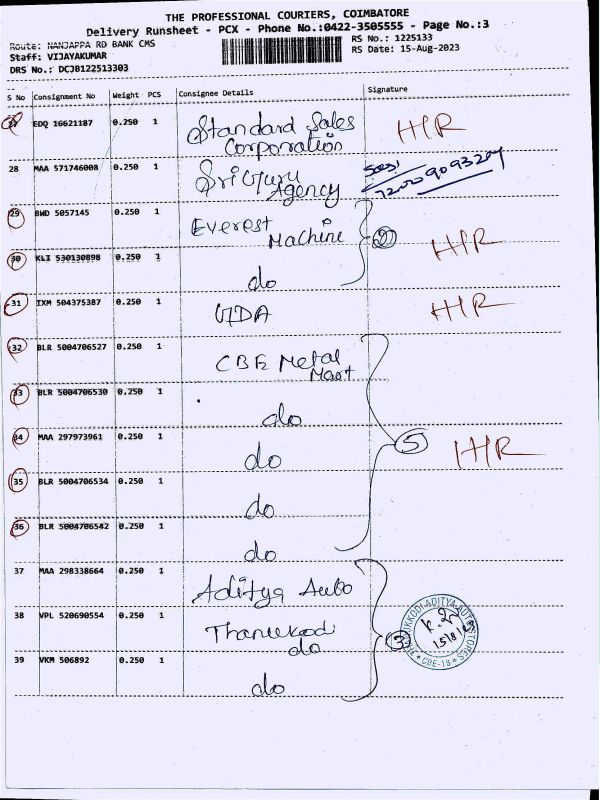 THE PROFESSIONAL COURIERS, COIMBATORE
Delivery Runsheet - PCX - Phone No.:0422-3505555 - Page No.:3
Route: NANJAPPA RD BANK CMS
RS No.: 1225133
Staff: VIJAYAKUMAR
RS Date: 15-Aug-2023
DRS No.: DCJB122513303
S No Consignment No Weight PCS Consignee Details Signature
27 EDQ 16621187 0.250 1 Standard Sales
Corporation H/R
28 MAA 571746008 0.250 1 Sri Guru
Agency
29 BWD 5057145 0.250 1 Everest
Machine (2) H/R
30 KLI 530130898 0.250 1
do
31 IXM 504375387 0.250 1 H/R
32 BLR 5004706527 0.250 1 CBE Metal
Mart
33 BLR 5004706530 0.250 1
do
34 MAA 297973961 0.250 1 (5) H/R
do
35 BLR 5004706534 0.250 1
do
36 BLR 5004706542 0.250 1
do
37 MAA 298338664 0.250 1
Aditya Auto
38 VPL 520690554 0.250 1
do (3)
39 VKM 506892 0.250 1
do
ADITYA AUTO STORES
15/8/
* CBE-18 *